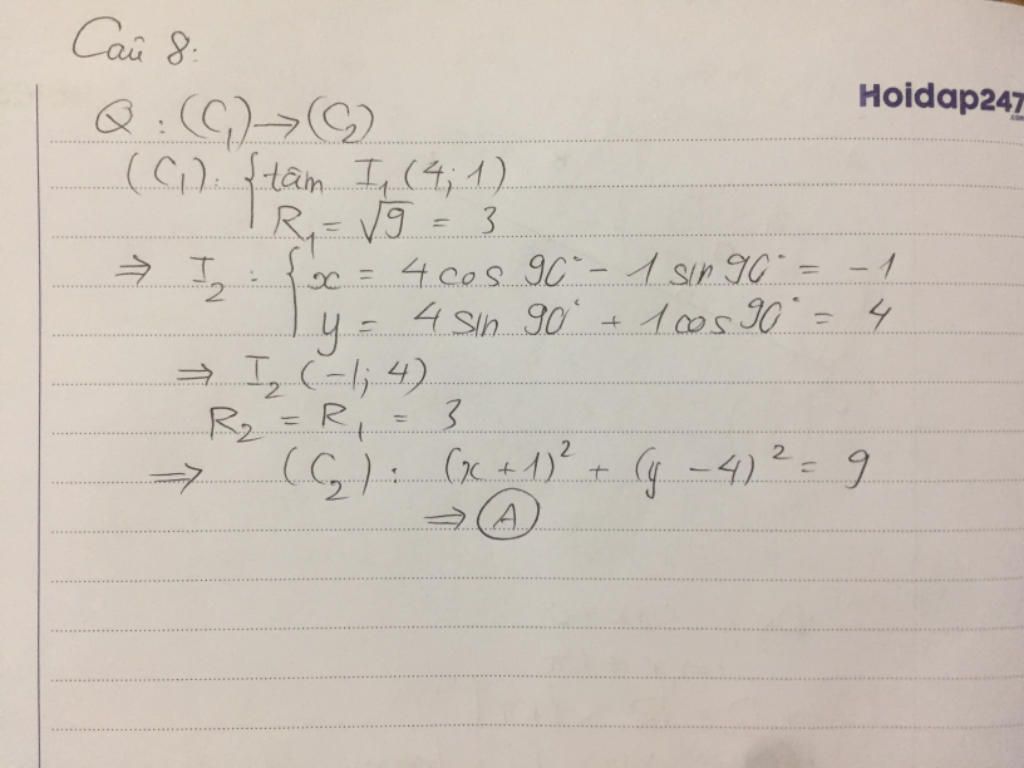 Câu 8:
Hoidap247.com
Q : (C₁) → (C₂)
(C₁): { tâm I₁ (4; 1)
R₁ = √9 = 3
⇒ I₂ : { x = 4 cos 90° - 1 sin 90° = -1
y = 4 sin 90° + 1 cos 90° = 4
⇒ I₂ (-1; 4)
R₂ = R₁ = 3
⇒ (C₂) : (x + 1)² + (y - 4)² = 9
⇒ A